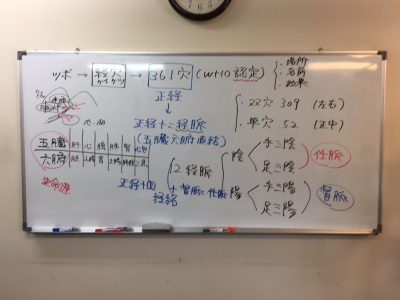 ツボ → 経穴 → 361穴 (WHO認定)
ケイ ケツ
・場所
・名前
・効果
正経
↓
正経十二経脈
(五臓六腑直結)
・双穴 309 (左右)
・単穴 52 (正中)
五臓 肝 心 脾 肺 腎
六腑 胆
生命源
12経脈
陰 手三陰
足三陰
任脈
陽 手三陽
足三陽
督脈
+ 督脈・任脈
経絡